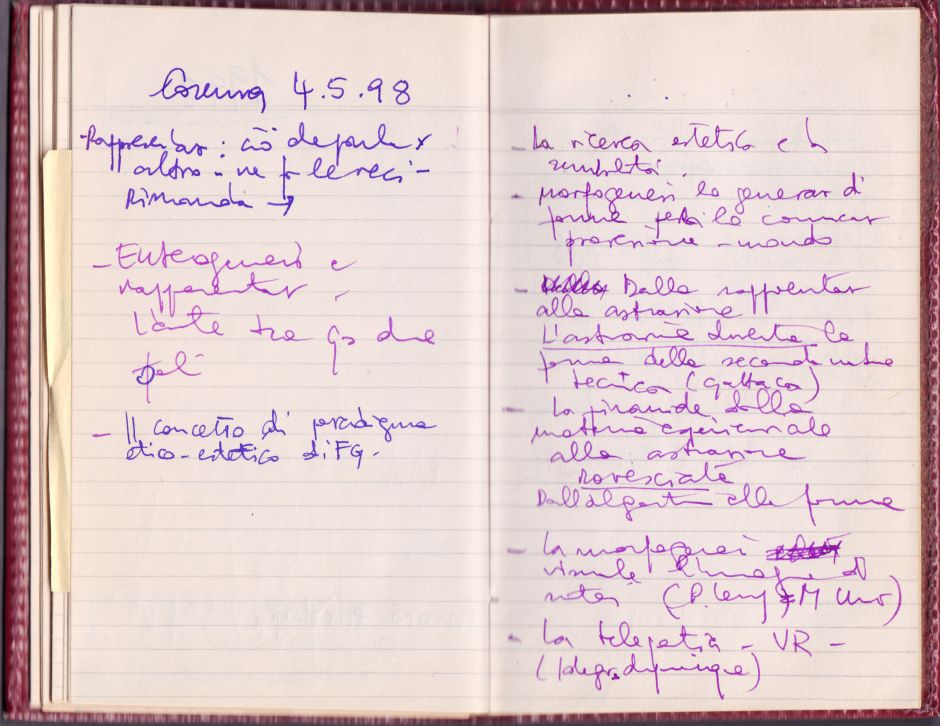 4.5.98
-Rappresentar: ciò de parla x
altro - ne fa le veci -
Rimanda →
- Enteogenesi e
rapparentar,
L'arte tra qs due
poli
- Il concetto di paradigma
etico-estetico di FG.
- La ricerca estetica e la
sensibilità.
- Morfogenesi lo generar di
forme
percezione - mondo
- Dalla rapprentar
alla astrazione
L'astrazione diventa la
forma della seconda natura
tecnica (gattaca)
- La piramide dalla
materia esperienziale
alla astrazione
rovesciata
Dall'algoritmo alla forma
- La morfogenesi
visuale l'image di
(P. Levy
- La telepatia - VR -
(Ideogr. dynamique)